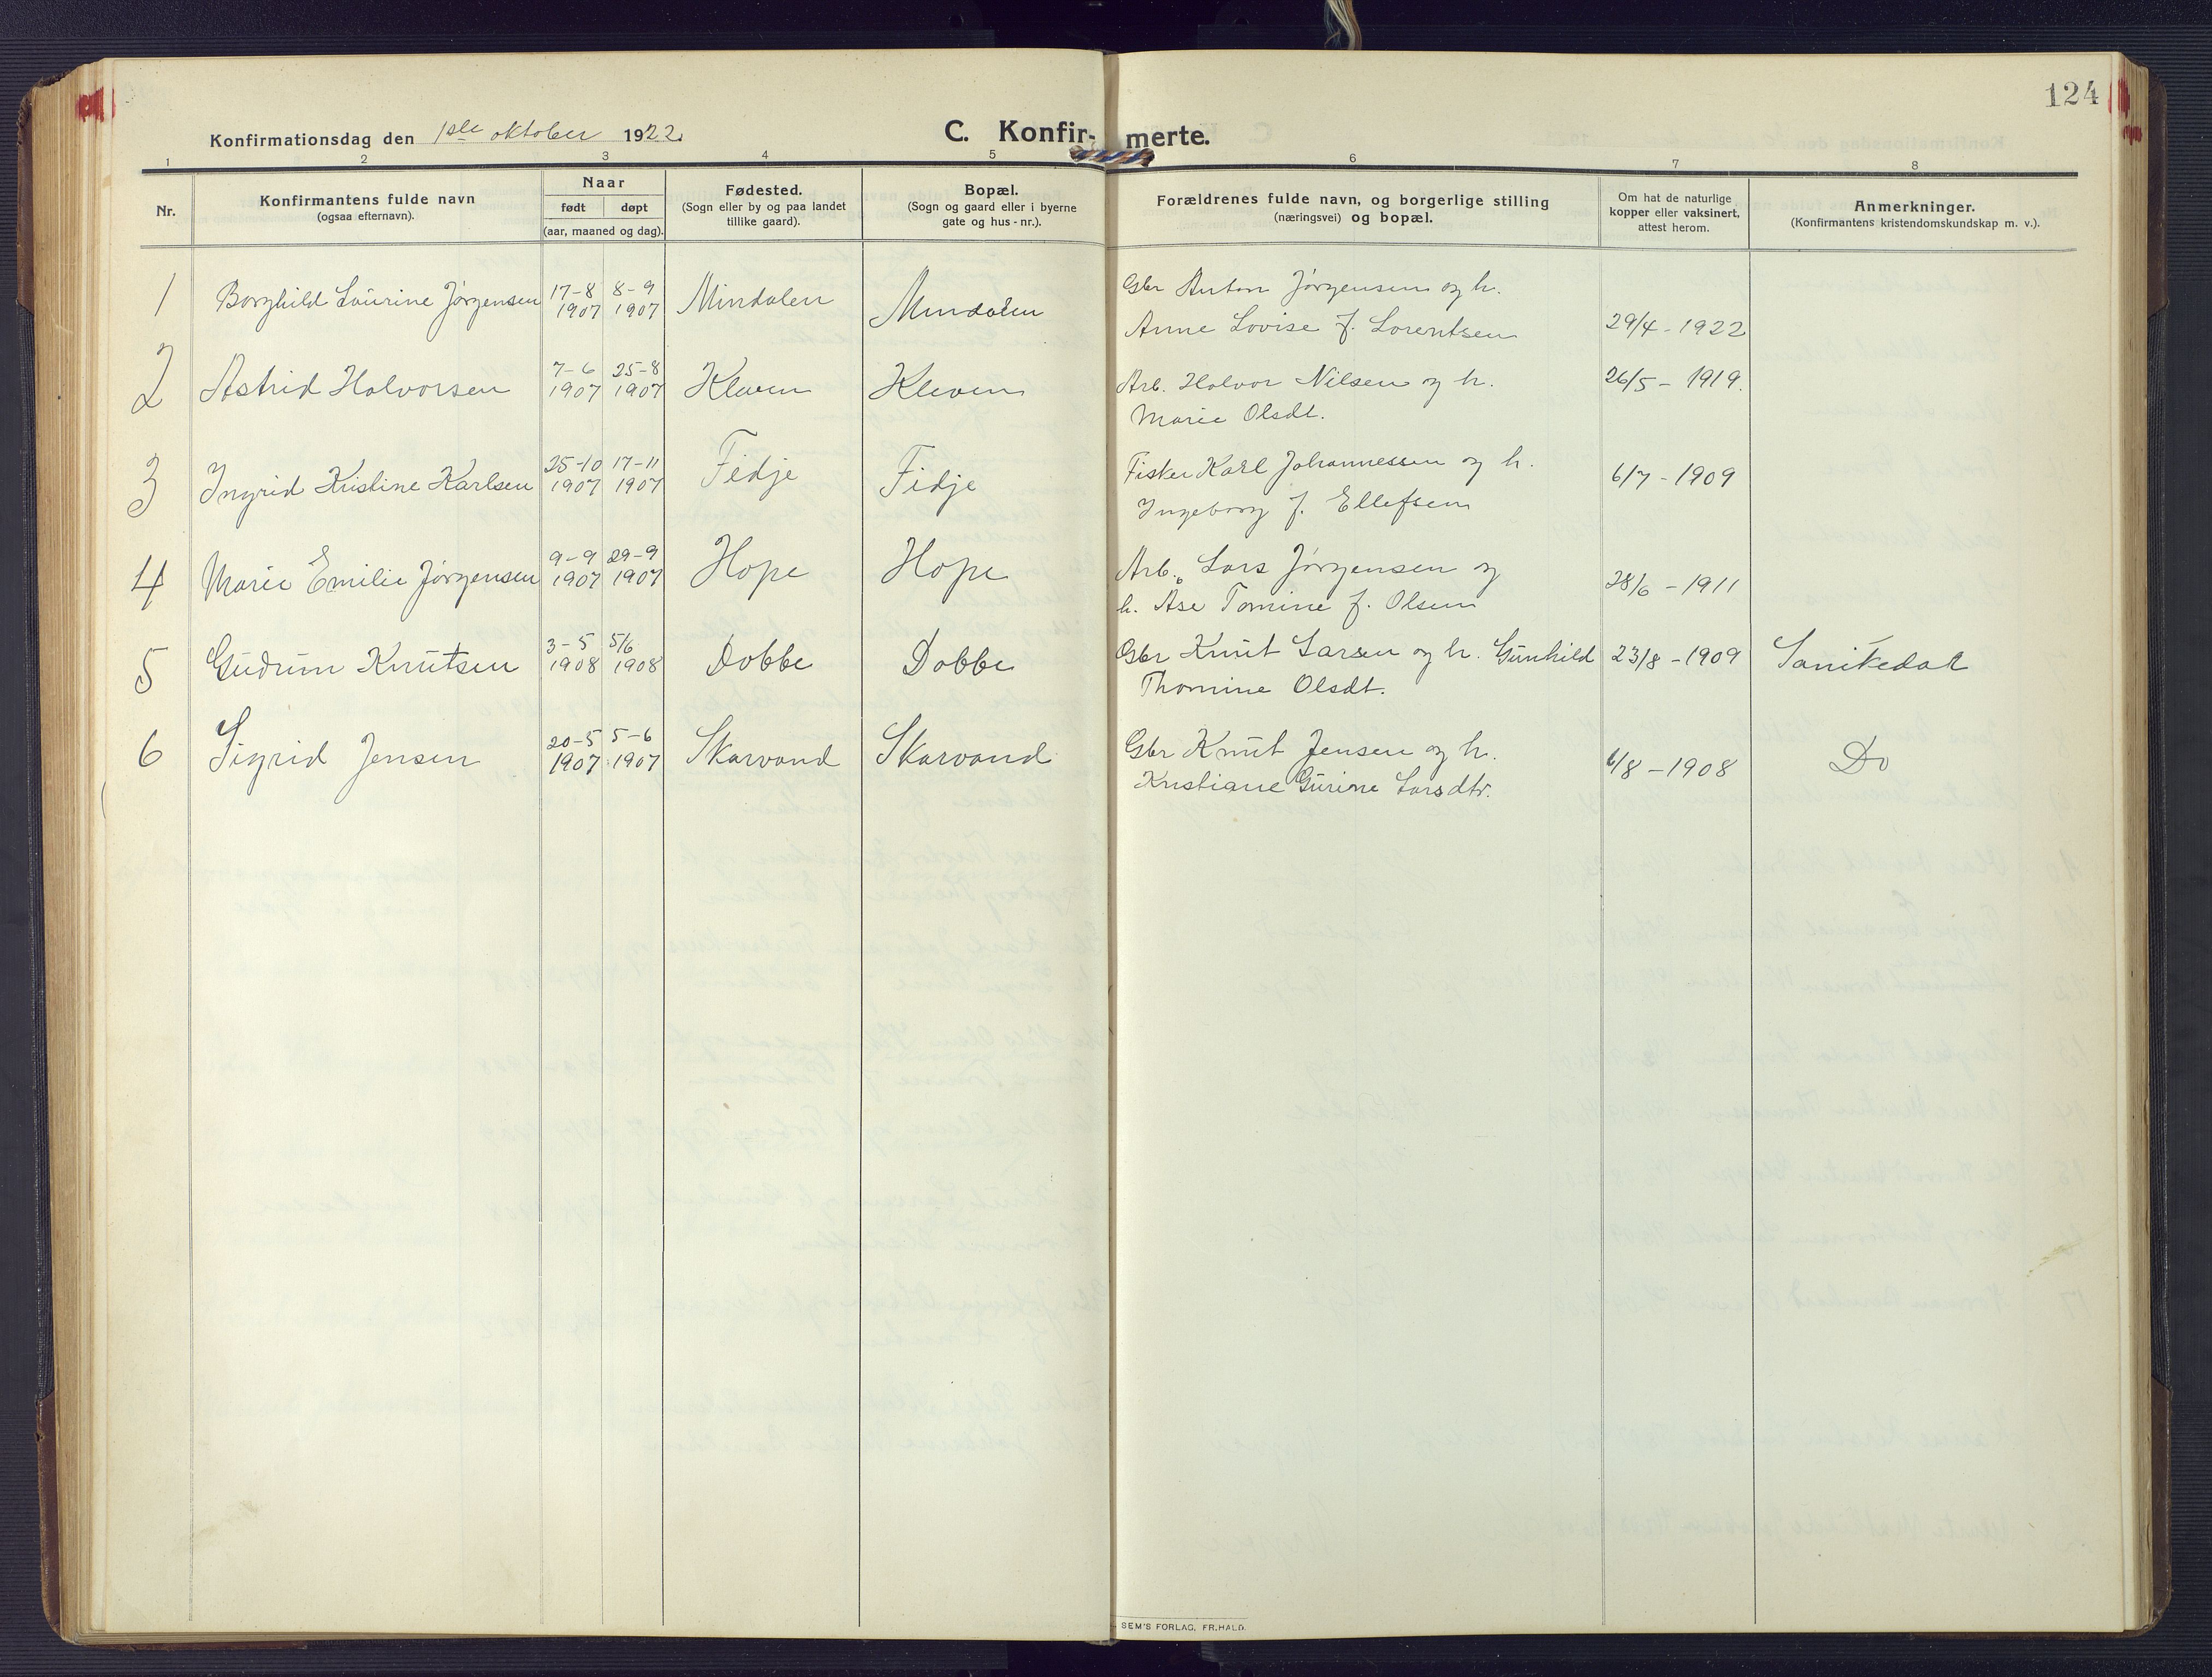 124
Konfirmationsdag den 1ste oktober 1922.
C. Konfir- merte.
1 2 3 4 5 6 7 8
Nr.
Konfirmantens fulde navn
(ogsaa efternavn).
Naar
født døpt
(aar, maaned og dag).
Fødested.
(Sogn eller by og paa landet
tillike gaard).
Bopæl.
(Sogn og gaard eller i byerne
gate og hus-nr.).
Forældrenes fulde navn, og borgerlige stilling
(næringsvei) og bopæl.
Om hat de naturlige
kopper eller vaksinert,
attest herom.
Anmerkninger.
(Konfirmantens kristendomskundskap m. v.).
1 Borghild Laurine Jørgensen 17-8 1907 8-9 1907 Mindalen Mindalen Gbr Anton Jørgensen og h.
Anne Lovise f. Lorentsen 29/4 - 1922
2 Astrid Halvorsen 7-6 1907 25-8 1907 Kleven Kleven Arb. Halvor Nilsen og h. 26/5 - 1919.
Marie Olsdt.
3 Ingrid Kristine Karlsen 25-10 1907 17-11 1907 Fidje Fidje Fisker Karl Johannessen og h. 6/7 - 1909
Ingeborg f. Ellefsen
4 Marie Emilie Jørgensen 9-9 1907 29-9 1907 Hope Hope Arb. Lars Jørgensen og
h. Åse Tomine f. Olsen 28/6 - 1911
5 Gudrun Knutsen 3-5 1908 5/6 1908 Dobbe Dobbe Gbr Knut Larsen og h. Gunhild 23/8 - 1909 Sanikedal
Thomine Olsdt.
6 Sigrid Jensen 20-5 1907 5-6 1907 Skarvand Skarvand Gbr Knut Jensen og h.
Kristiane Gurine Larsdtr. 6/8 - 1908 Do
SEM'S FORLAG, FR.HALD.